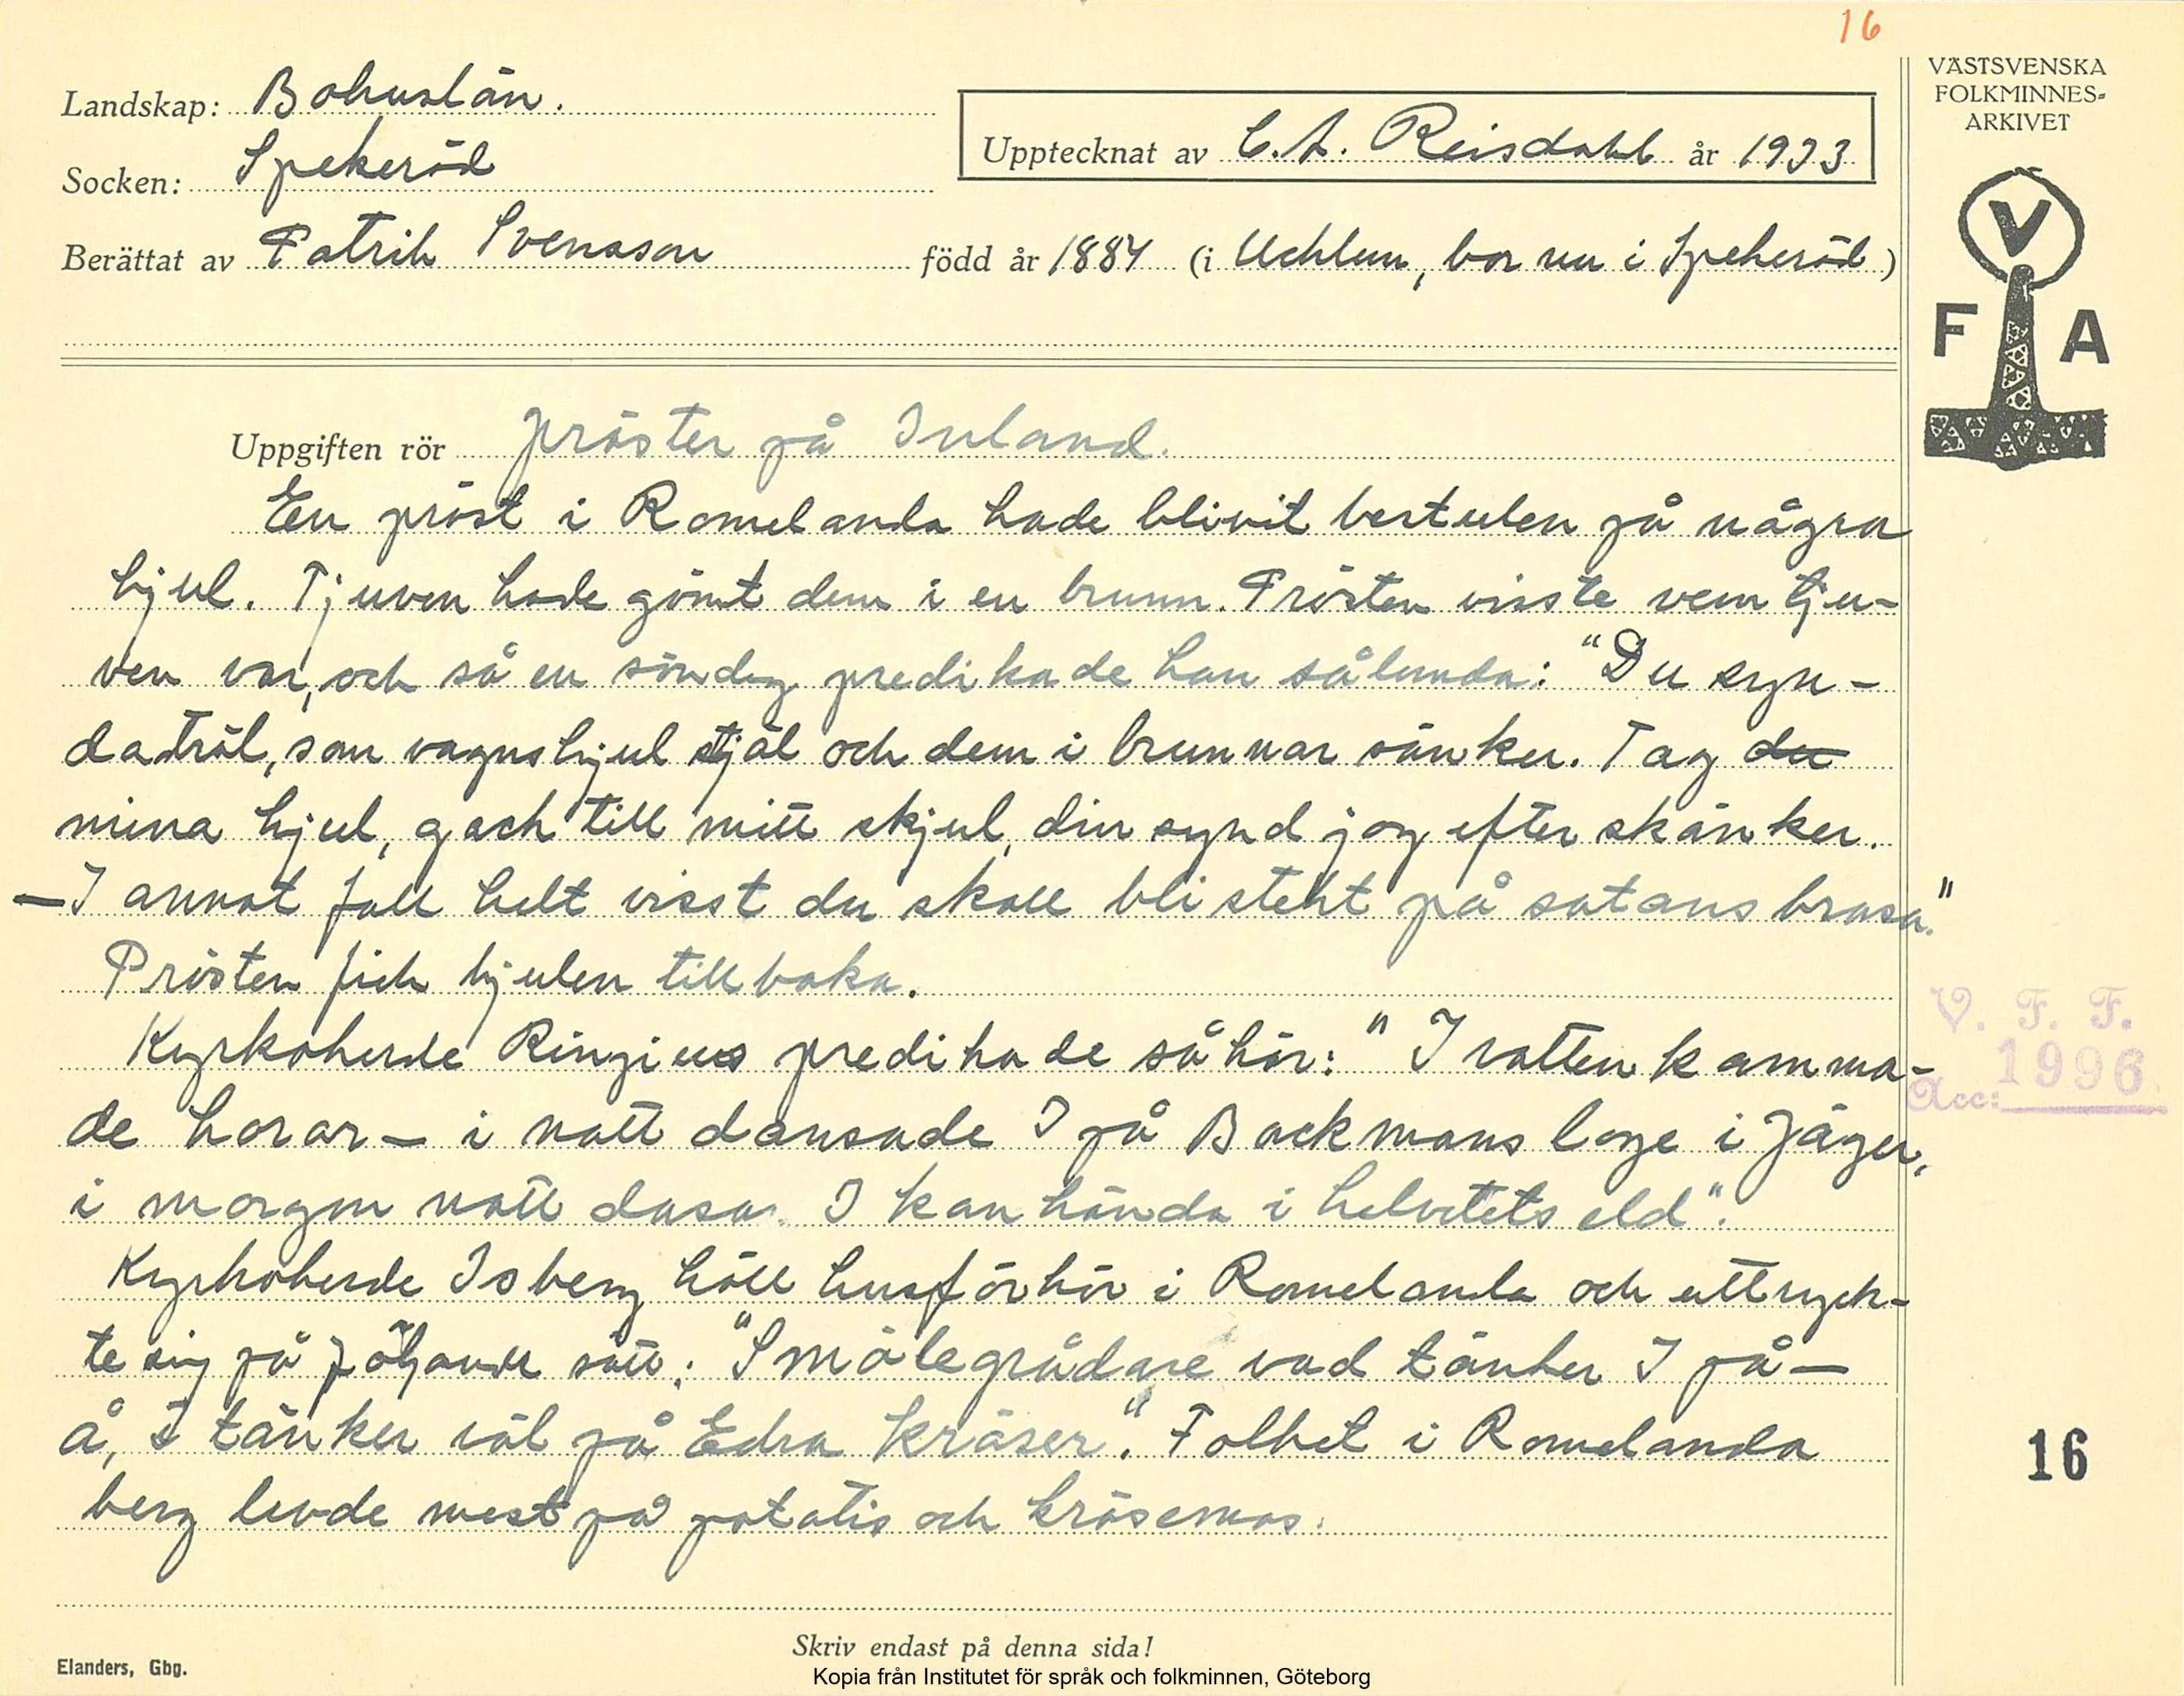 16
Landskap: Bohuslän.
Socken: Spekeröd
Berättat av Patrik Svensson född år 1884 (i Ucklum, bor nu i Spekeröd)
Upptecknat av C. A. Reisdahl år 1933
VÄSTSVENSKA
FOLKMINNES-
ARKIVET
V
F A
Uppgiften rör präster på Inland.
En präst i Romelanda hade blivit bestulen på några
hjul. Tjuven hade gömt dem i en brunn. Prästen visste vem tju-
ven var, och så en söndag predikade han sålunda: "Du syn-
daträl, som vagnshjul stjäl och dem i brunnar sänker. Tag du
mina hjul, gack till mitt skjul, din synd jag efter skänker.
—I annat fall helt visst du skall bli stekt på satans brasa."
Prästen fick hjulen tillbaka.
Kyrkoherde Ringius predikade så här: "I vattenkamma-
de horor — i natt dansade I på Backmans loge i Jäger,
i morgon natt dasar I kanhända i helvetets eld".
Kyrkoherde Isberg höll husförhör i Romelanda och uttryck-
te sig på följande sätt: "Smålegrådare vad tänker I på —
å, I tänker väl på Edra kräser". Folket i Romelanda
berg levde mest på potatis och kräsemos.
V. F. F.
Acc: 1996
16
Skriv endast på denna sida!
Elanders, Gbg.
Kopia från Institutet för språk och folkminnen, Göteborg